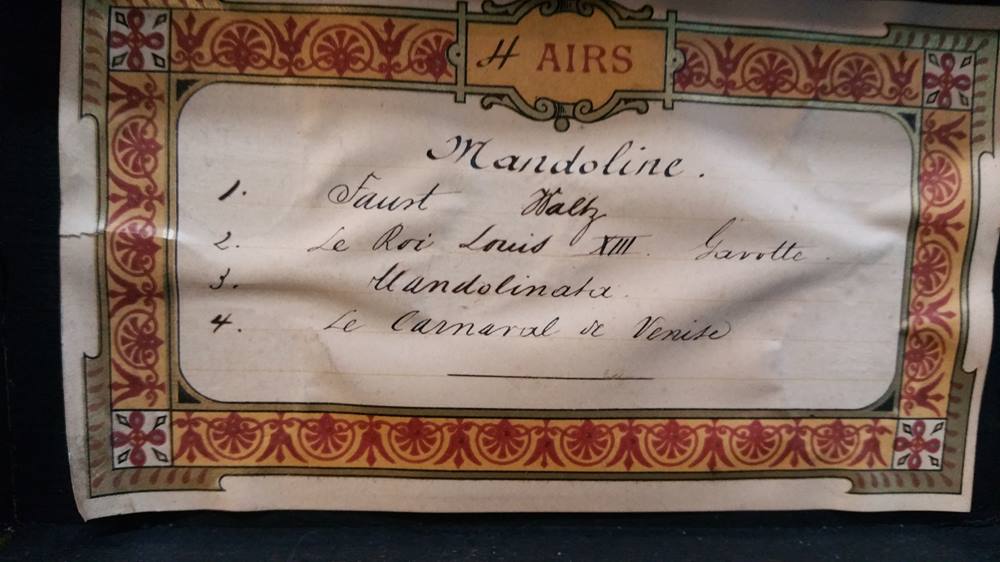 4 AIRS
Mandoline.
1. Faust Waltz
2. Le Roi Louis XIII. Gavotte.
3. Mandolinata.
4. Le Carnaval de Venise